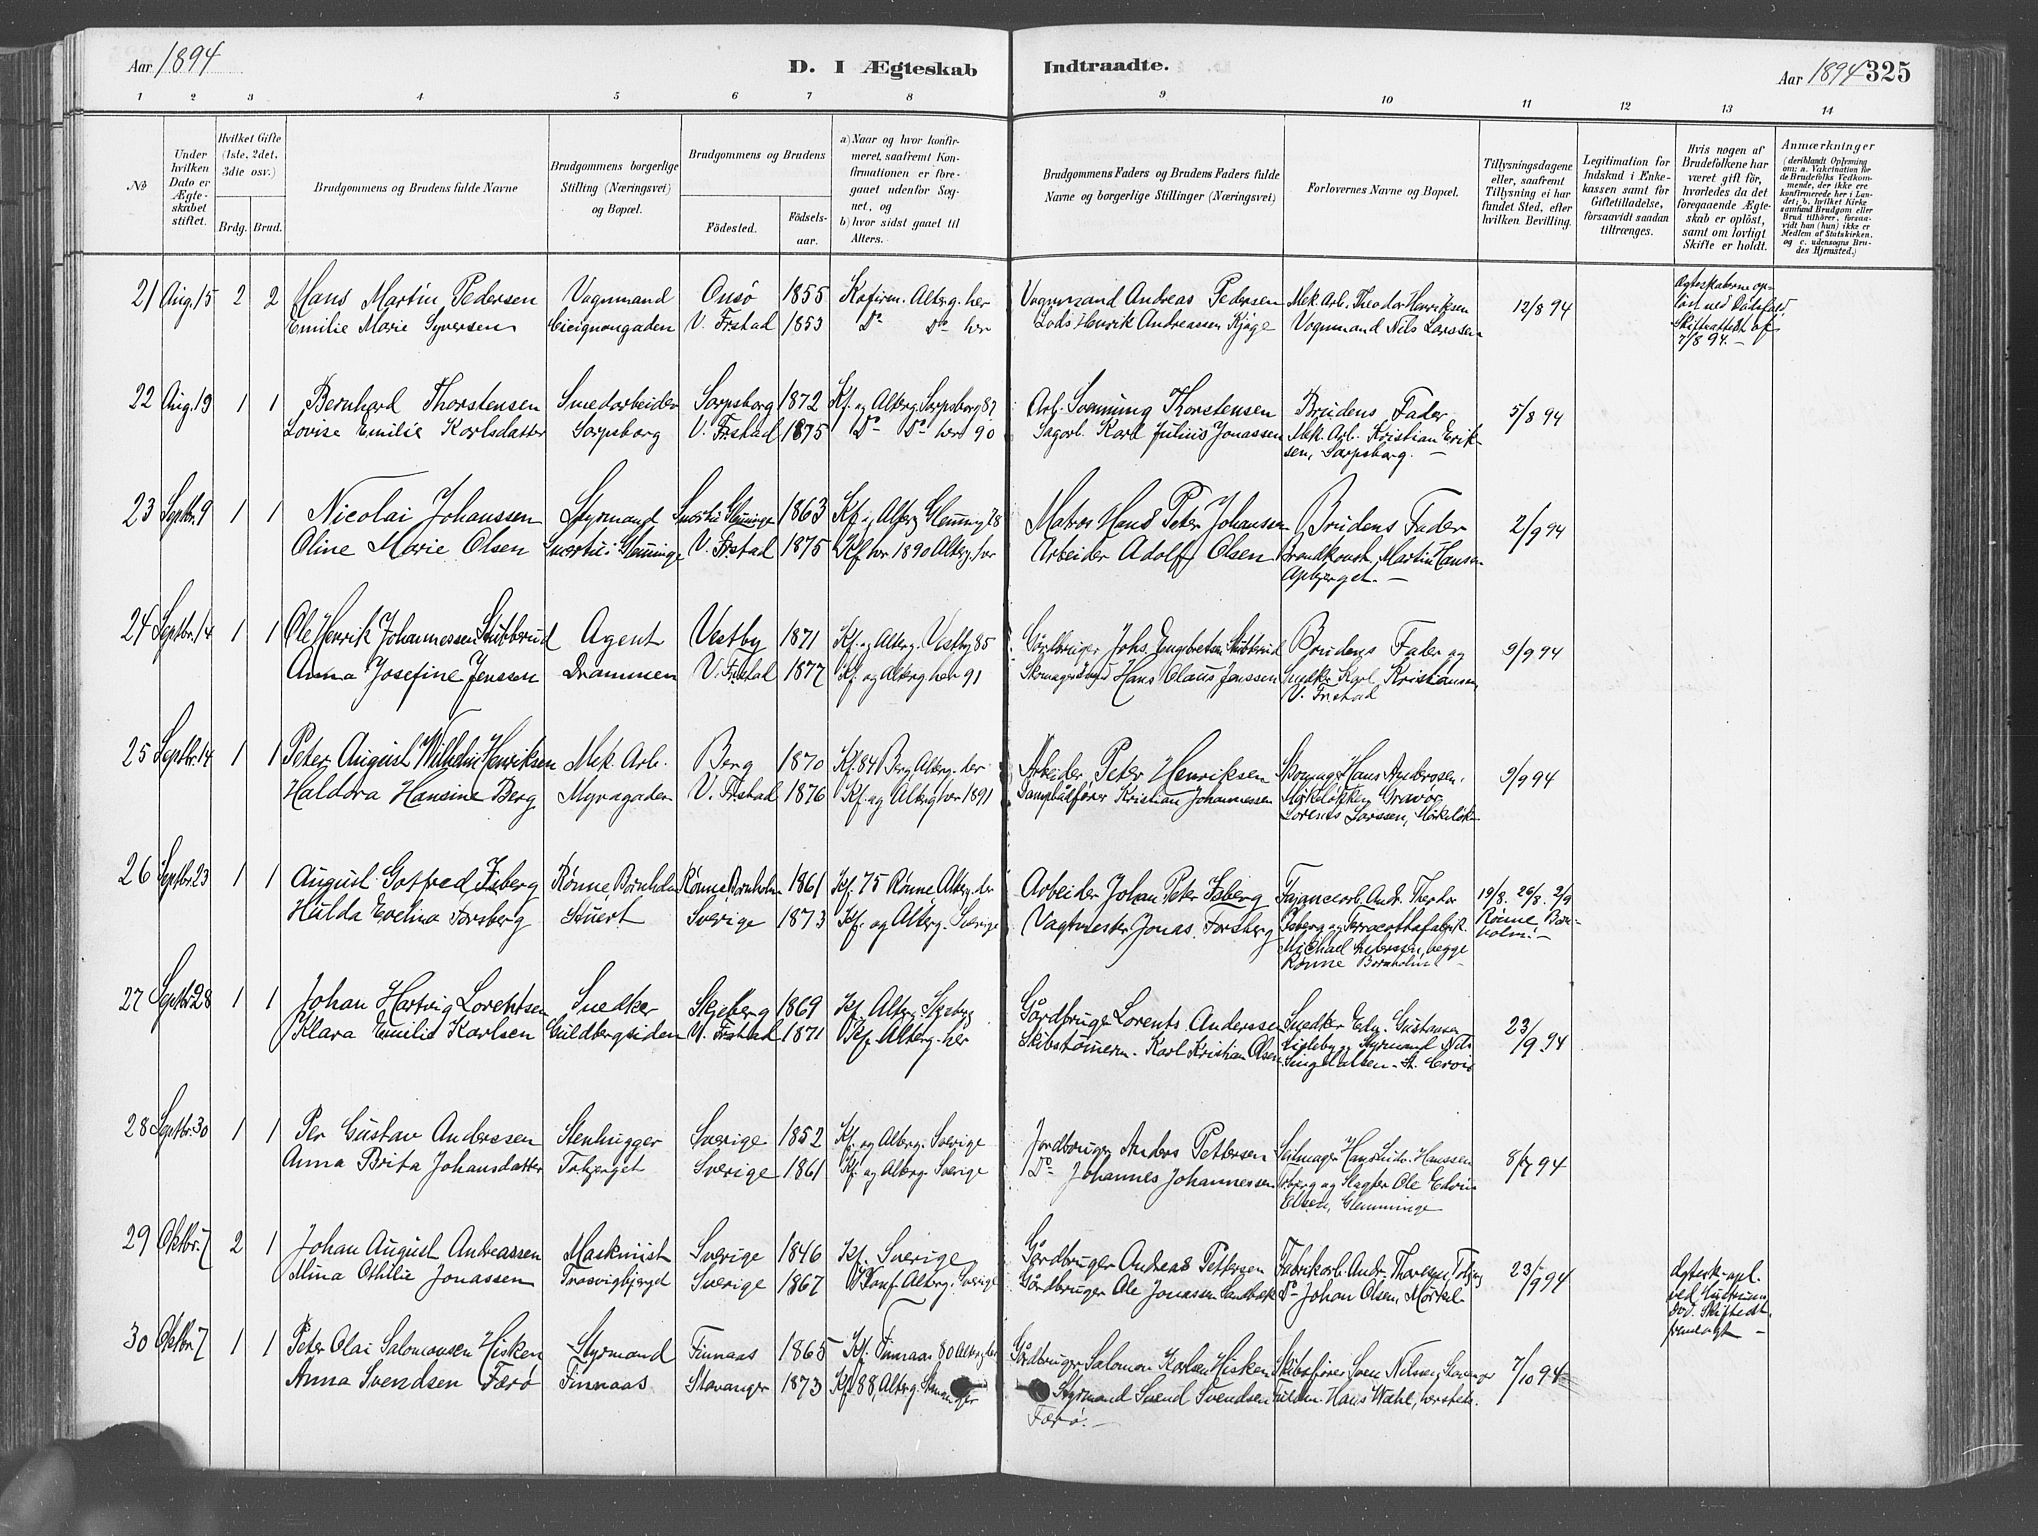 Aar 1894
D. I Ægteskab Indtraadte.
Aar 1894 325
1 2 3 4 5 6 7 8 9 10 11 12 13 14
№
Under hvilken Dato er Ægteskabet stiftet.
Hvilket Gifte (1ste, 2det, 3die osv.)
Brdg. Brud.
Brudgommens og Brudens fulde Navne
Brudgommens borgerlige Stilling (Næringsvei) og Bopæl.
Brudgommens og Brudens
Fødested.
Fødselsaar.
a) Naar og hvor konfirmeret, saafremt Konfirmationen er foregaaet udenfor Sognet, og
b) hvor sidst gaaet til Alters.
Brudgommens Faders og Brudens Faders fulde Navne og borgerlige Stillinger (Næringsvei)
Forlovernes Navne og Bopæl.
Tillysningsdagene eller, saafremt Tillysning ei har fundet Sted, efter hvilken Bevilling.
Legitimation for Indskud i Enkekassen samt for Giftetilladelse, forsaavidt saadan tiltrænges.
Hvis nogen af Brudefolkene har været gift før, hvorledes da det foregaaende Ægteskab er opløst, samt om lovligt Skifte er holdt.
Anmærkninger
(deriblandt Oplysning om: a. Vaccination for de Brudefolks Vedkommende, der ikke ere konfirmerede her i Landet; b. hvilket Kirkesamfund Brudgom eller Brud tilhører, forsaavidt han (hun) ikke er Medlem af Statskirken. og c. udensogns Brudes Hjemsted.)
21 Aug. 15 2 2 Hans Martin Pedersen Vognmand Onsø 1855 Kofirm. Alterg. her Vognmand Andreas Pedersen Mek. Arb. Theodor Henriksen 12/8 94 Ægteskaberne op-
Emilie Marie Syversen Cicignongaden V. Frstad 1853 Do Do her Lods Henrik Andreassen Kjøge Vognmand Nils Larssen løst ved Dødsfald.
Skifteattest af
7/8 94. —
22 Aug. 19 1 1 Bernhard Thorstensen Smedarbeider Sarpsborg 1872 Kf. og Alterg. Sarpsborg 87 Arb. Svenning Thorstensen Brudens Fader 5/8 94
Lovise Emilie Karlsdatter Sarpsborg V. Frstad 1875 Do Do her 90 Sagarb. Karl Julius Jonassen Mek. Arb. Kristian Erik-
sen, Sarpsborg. —
23 Septbr. 9 1 1 Nicolai Johanssen Styrmand Glemminge 1863 Kf. og Alterg Glemmg 78 Matros Hans Peter Johansen Brudens Fader 2/9 94
Oline Marie Olsen Glemminge V. Frstad 1875 Kf. her 1890 Alterg. her Arbeider Adolf Olsen Martin Hansen
Apbjerget. —
24 Septbr. 14 1 1 Ole Henrik Johannessen Stubberud Agent Vestby 1871 Kf. og Alterg. Vestby 85 Gårdbruger Johs. Engebretsen Stubberud Brudens Fader og 9/9 94
Anna Josefine Jenssen Drammen V. Frstad 1877 Kf. og Alterg. her 91 Hans Olaus Jenssen Snedker Karl Kristiansen,
V. Frstad
25 Septbr. 14 1 1 Peter August Wilhelm Henriksen Mek. Arb. Berg 1870 Kf. 84 Berg Alterg. der Arbeider Peter Henriksen Skomager Hans Ambrosen, 9/9 94
Haldora Hansine Berg Myragaden V. Frstad 1876 Kf. og Alterg her 1891 Dampbådfører Kristian Johannessen Mørkeløkken Gravør
Lorents Larssen, Mørkeløk-
26 Septbr. 23 1 1 August Gotfred Isberg Rønne Bornholm Rønne Bornholm 1861 Kf. 75 Rønne Alterg. der Arbeider Johan Peter Isberg Fajancearb. Andr. Theodor 19/8. 26/8. 2/9
Hulda Evelina Forsberg Sverige 1873 Kf. og Alterg. Sverige Vagtmester Jonas Forsberg Isberg og Terracottafabrik. Rønne Born-
Michael Andersen, begge holm. —
Rønne Bornholm —
27 Septbr. 28 1 1 Johan Hartvig Lorentsen Snedker Skjeberg 1869 Kf. Alterg. Skjeberg Gårdbruger Lorents Anderssen Snedker Edv. Gustavsen 23/9 94
Klara Emilie Karlsen Guldbergsiden V. Frstad 1871 Kf. Alterg. her Skibstømerm. Karl Kristian Olsen og Styrmand Nils
28 Septbr. 30 1 1 Per Gustav Anderssen Stenhugger Sverige 1852 Kf. og Alterg. Sverige Jordbruger Anders Pettersen Seilmager Hans Ludv. Hanssen 8/7 94
Anna Brita Johansdatter Torbjerget Sverige 1861 Kf. og Alterg. Sverige Do Johannes Johannessen og Slagter Ole Edvin
Olsen, Glemminge
29 Oktbr. 7 2 1 Johan August Andreassen Maskinist Sverige 1846 Kf. Sverige Gårdbruger Andreas Pettersen Fabrikarb. Andr. Thoresen, 23/9 94 Ægtesk. opl.
Mina Othilie Jonassen Trosvigbjerget Sverige 1867 Konf. Alterg. Sverige Gårdbruger Ole Jonassen Do Johan Olsen, Mørkel. ved Hustruens
Død. Skifteatt.
fremlagt —
30 Oktbr 7 1 1 Peter Olai Salomonsen Hisken Styrmand Finnaas 1865 Kf. Finnaas 80 Alterg. der Gårdbruger Salomon Karlsen Hisken Skibsfører Sven Nilsen, 7/10 94
Anna Svendsen Færø Finnaas Stavanger 1873 Kf. 88, Alterg. Stavanger Styrmand Svend Svendsen Hans Wahl,
Færø. —